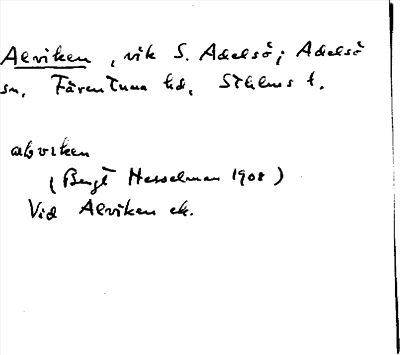 Alviken, vik S. Adelsö; Adelsö
sn, Färentuna hd, Sthlms l.
alviken
(Bengt Hesselman 1908)
Vid Alviken ek.